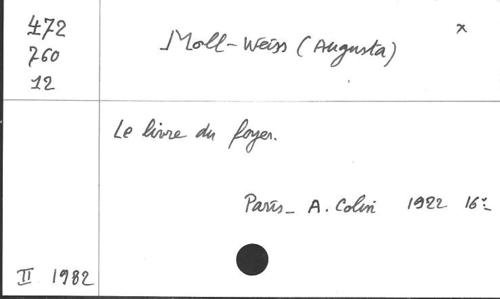 472
760
12
Moll-Weiss (Augusta)
x
Le livre du foyer.
Paris_ A. Colin 1922 16º
II 1982